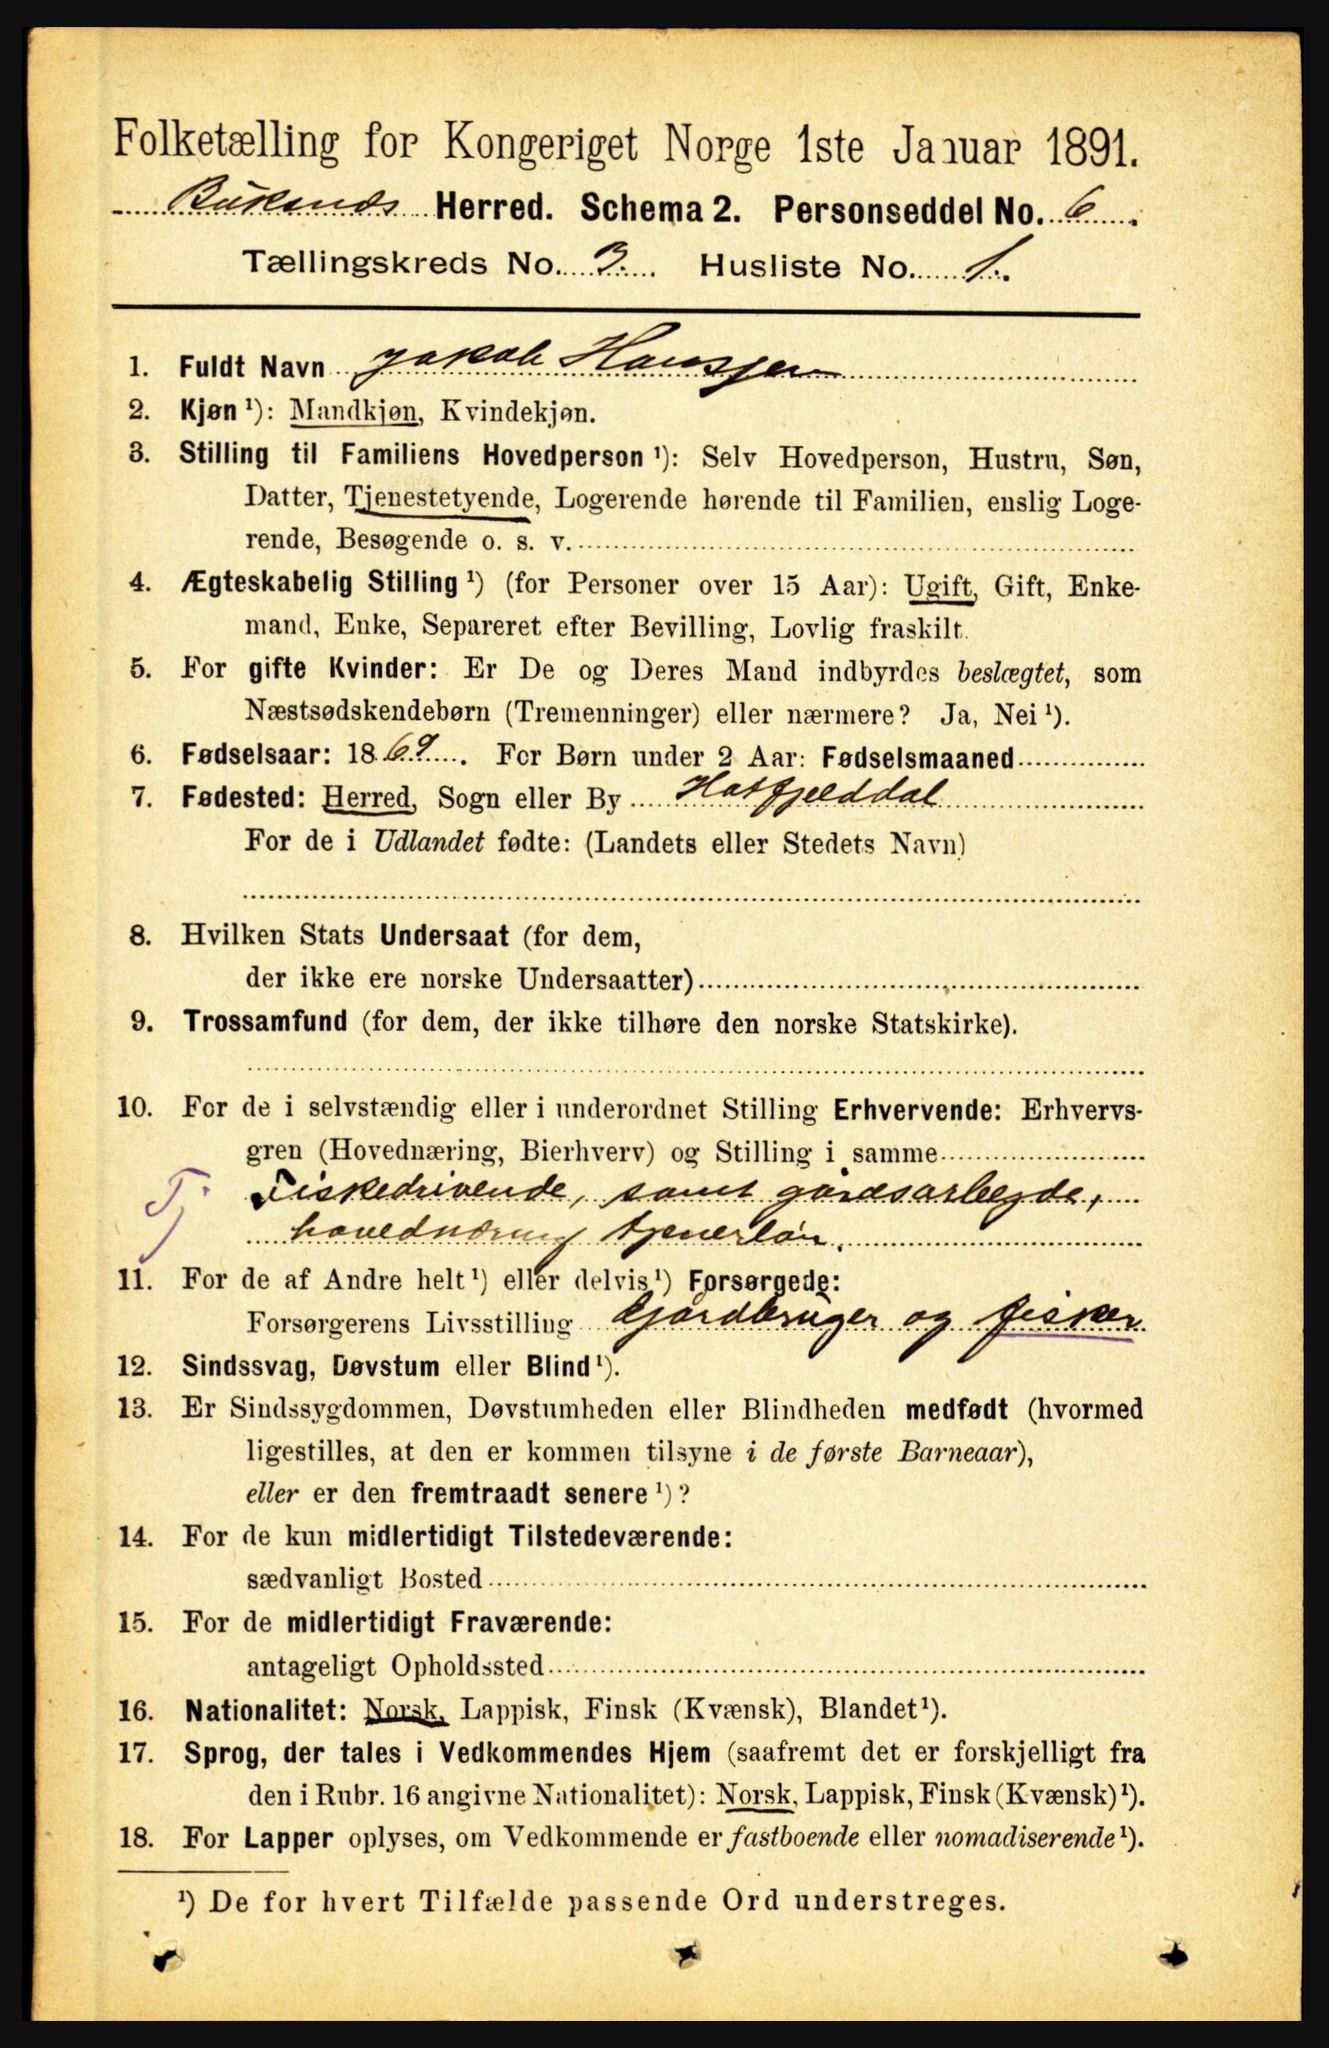 Folketælling for Kongeriget Norge 1ste Januar 1891.
Buksnæs Herred. Schema 2. Personseddel No. 6.
Tællingskreds No. 3. Husliste No. 1.
1. Fuldt Navn Jakob Hanssen
2. Kjøn ¹): Mandkjøn, Kvindekjøn.
3. Stilling til Familiens Hovedperson ¹): Selv Hovedperson, Hustru, Søn,
Datter, Tjenestetyende, Logerende hørende til Familien, enslig Loge-
rende, Besøgende o. s. v.
4. Ægteskabelig Stilling ¹) (for Personer over 15 Aar): Ugift, Gift, Enke-
mand, Enke, Separeret efter Bevilling, Lovlig fraskilt.
5. For gifte Kvinder: Er De og Deres Mand indbyrdes beslægtet, som
Næstsødskendebørn (Tremenninger) eller nærmere? Ja, Nei ¹).
6. Fødselsaar: 1869. For Børn under 2 Aar: Fødselsmaaned
7. Fødested: Herred, Sogn eller By Hatfjelddal
For de i Udlandet fødte: (Landets eller Stedets Navn)
8. Hvilken Stats Undersaat (for dem,
der ikke ere norske Undersaatter)
9. Trossamfund (for dem, der ikke tilhøre den norske Statskirke).
10. For de i selvstændig eller i underordnet Stilling Erhvervende: Erhvervs-
gren (Hovednæring, Bierhverv) og Stilling i samme
Tj Fiskedrivende, samt gårdsarbeyde,
hovednæring tjenerløn.
11. For de af Andre helt ¹) eller delvis ¹) Forsørgede:
Forsørgerens Livsstilling Gjårdbruger og fisker
12. Sindssvag, Døvstum eller Blind ¹).
13. Er Sindssygdommen, Døvstumheden eller Blindheden medfødt (hvormed
ligestilles, at den er kommen tilsyne i de første Barneaar),
eller er den fremtraadt senere ¹)?
14. For de kun midlertidigt Tilstedeværende:
sædvanligt Bosted
15. For de midlertidigt Fraværende:
antageligt Opholdssted
16. Nationalitet: Norsk, Lappisk, Finsk (Kvænsk), Blandet ¹).
17. Sprog, der tales i Vedkommendes Hjem (saafremt det er forskjelligt fra
den i Rubr. 16 angivne Nationalitet): Norsk, Lappisk, Finsk (Kvænsk) ¹).
18. For Lapper oplyses, om Vedkommende er fastboende eller nomadiserende ¹).
¹) De for hvert Tilfælde passende Ord understreges.